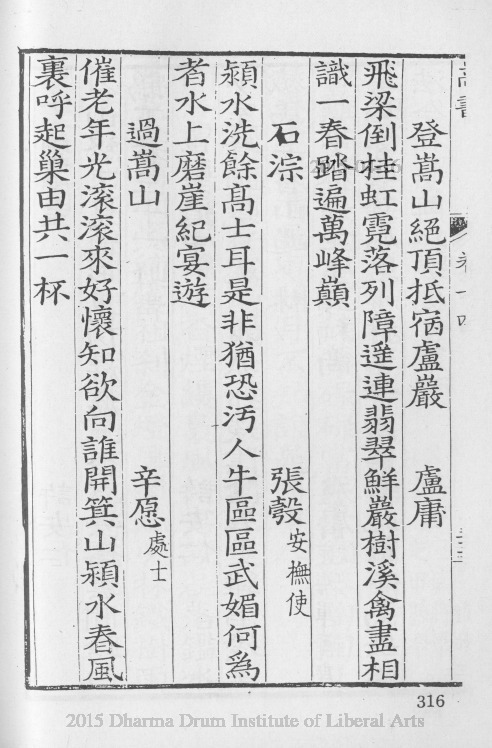 嵩書
卷十四
登嵩山絕頂抵宿盧巖　盧庸
飛梁倒挂虹霓落列障遥連翡翠鮮巖樹溪禽盡相
識一春踏遍萬峰巔
石淙　張瑴安撫使
潁水洗餘高士耳是非猶恐汚人牛區區武媚何爲
者水上磨崖紀宴遊
過嵩山　辛愿處士
催老年光滚滚來好懷知欲向誰開箕山潁水春風
裏呼起巢由共一杯
316
2015 Dharma Drum Institute of Liberal Arts